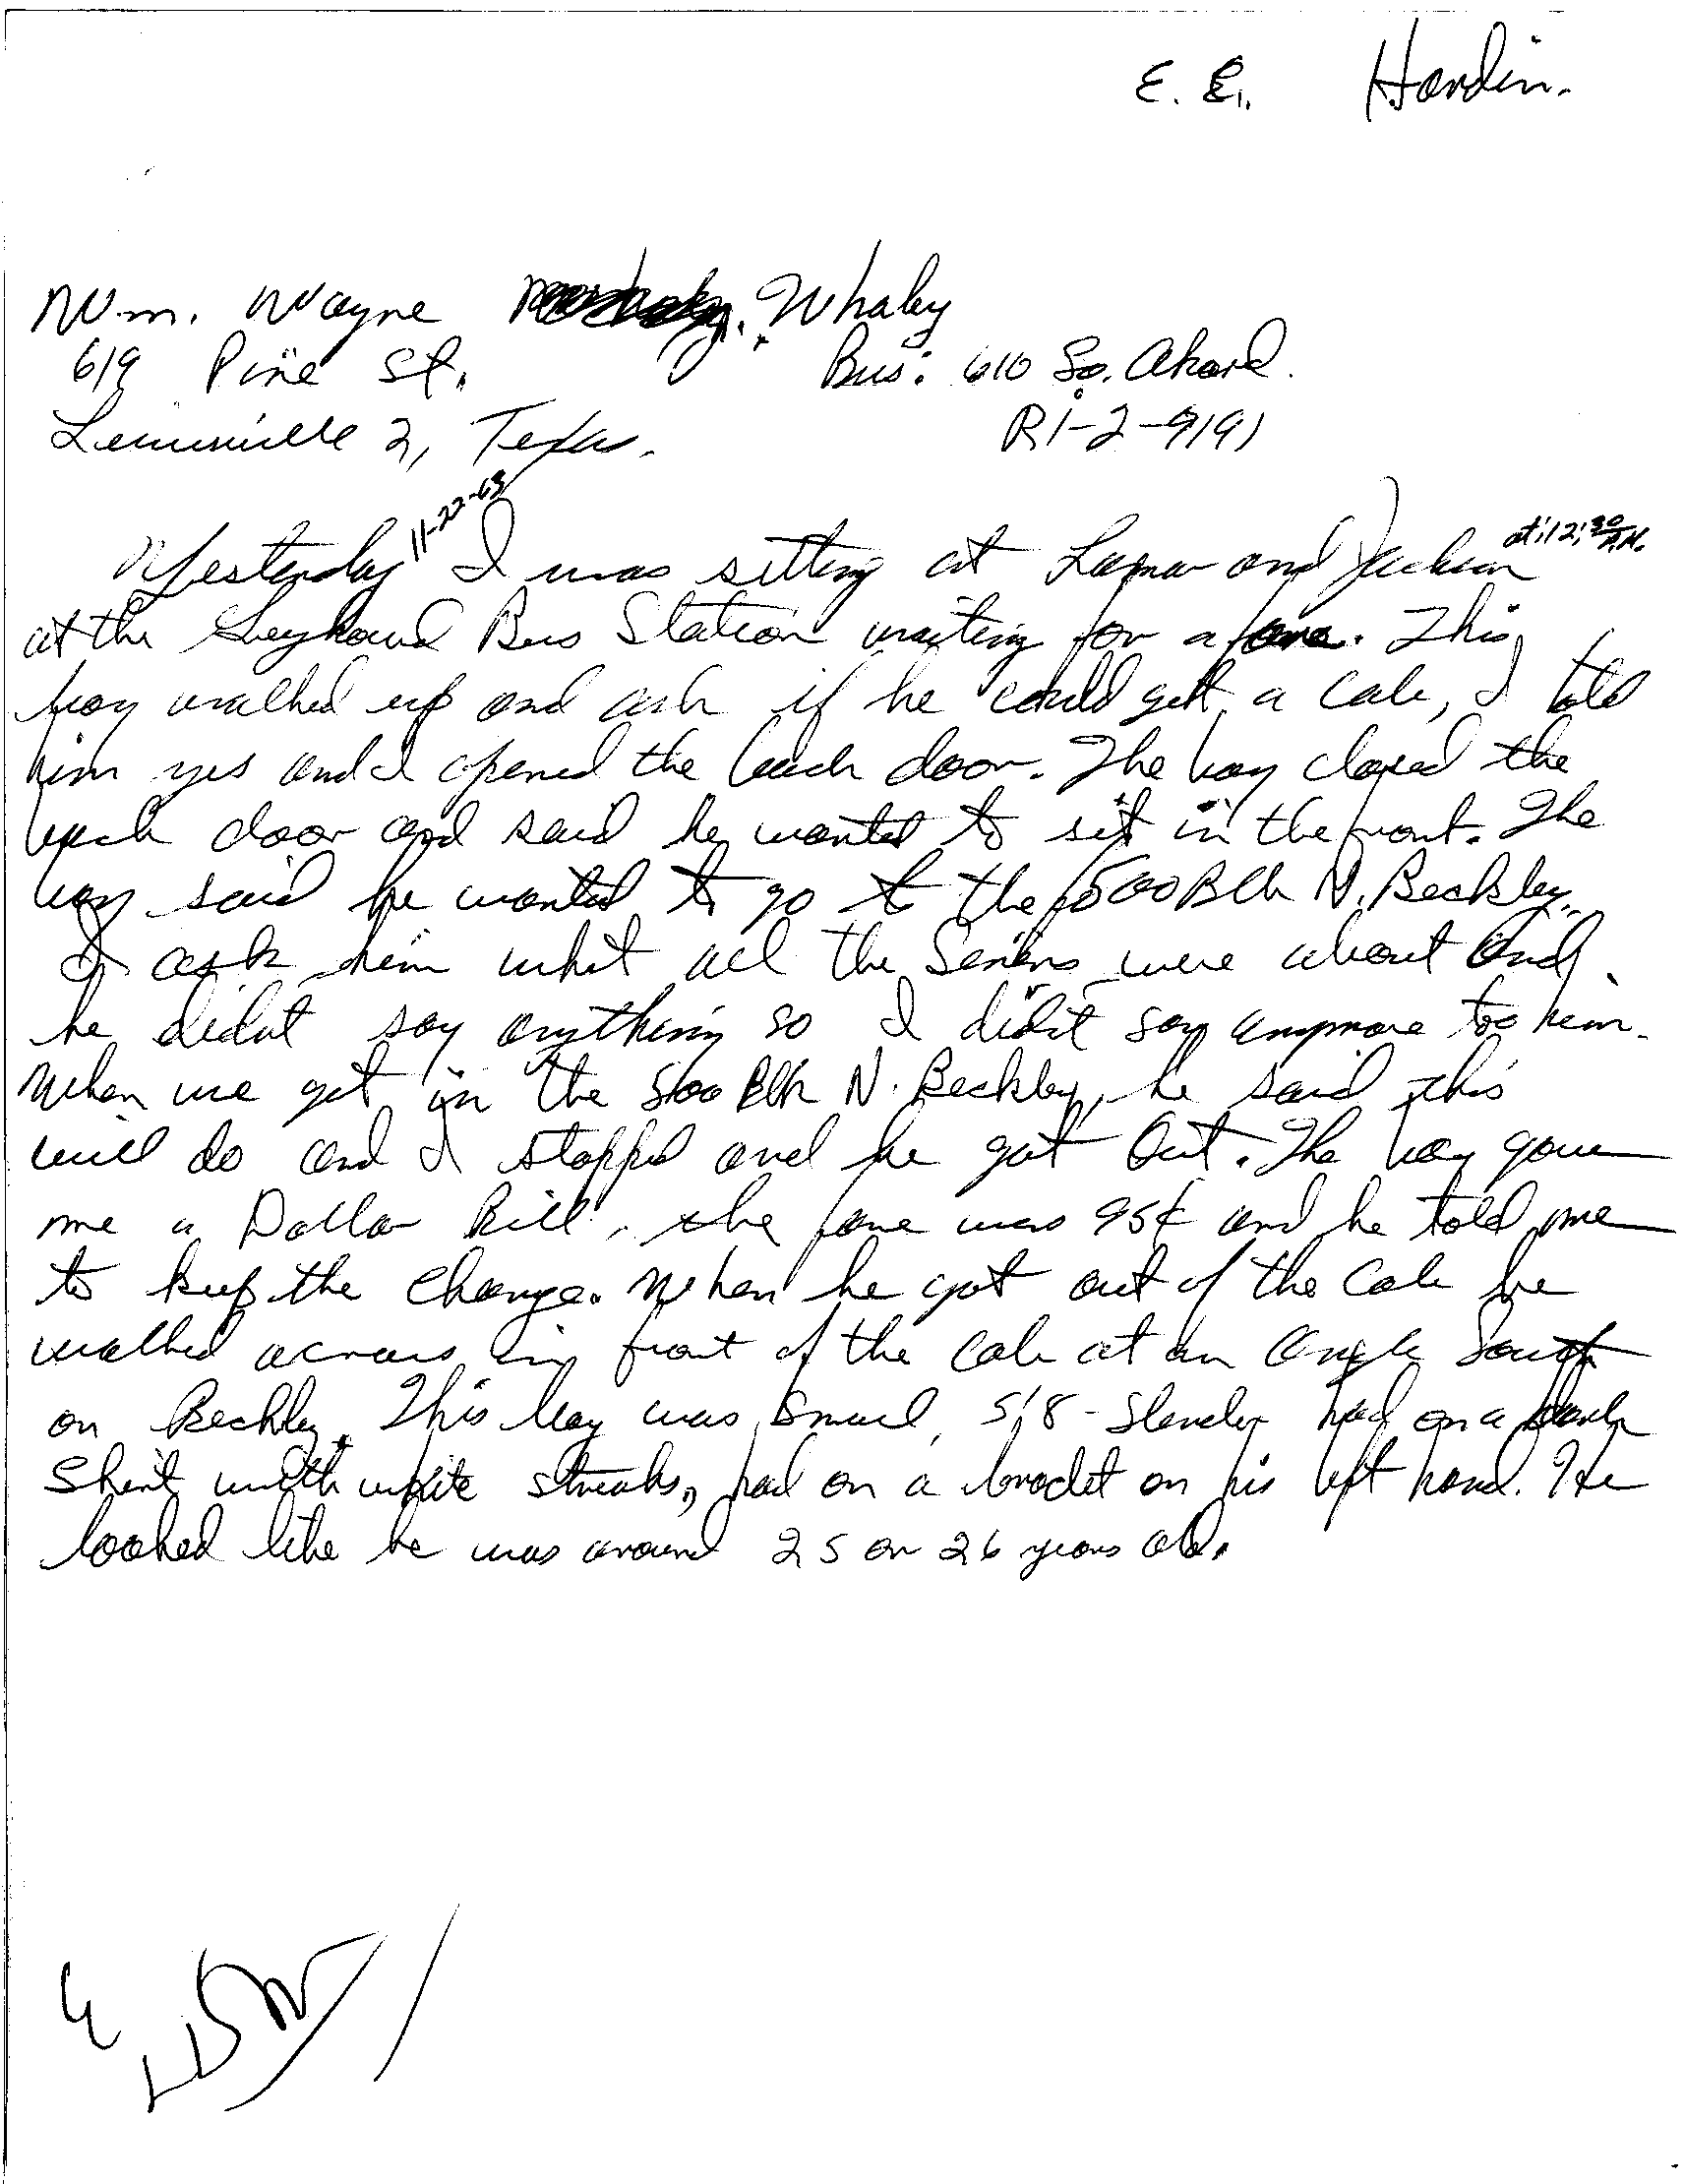 E. E. Hardin.
Wm. Wayne Whaley
619 Pine St. Bus: 610 So. Akard.
Lewisville 2, Texas. RI-2-9191
Yesterday 11-22-63 I was sitting at Lamar and Jackson at 12:30
at the Greyhound Bus Station waiting for a fare. This
boy walked up and ask if he could get a cab, I told
him yes and I opened the back door. The boy closed the
back door and said he wanted to sit in the front. The
boy said he wanted to go to the 500 Blk N. Beckley.
I ask him what all the Sirens were about and
he didnt say anything so I didn't say anymore too him.
When we get in the 500 Blk N. Beckley, he said this
will do and I stopped and he got Out. The boy gave
me a Dollar Bill, the fare was 95¢ and he told me
to keep the change. When he got out of the Cab he
walked across in front of the Cab at an angle South
on Beckley. This boy was Small, 5'8 - Slender had on a dark
Shirt with white streaks, had on a braclet on his left hand. He
looked like he was around 25 or 26 years old.